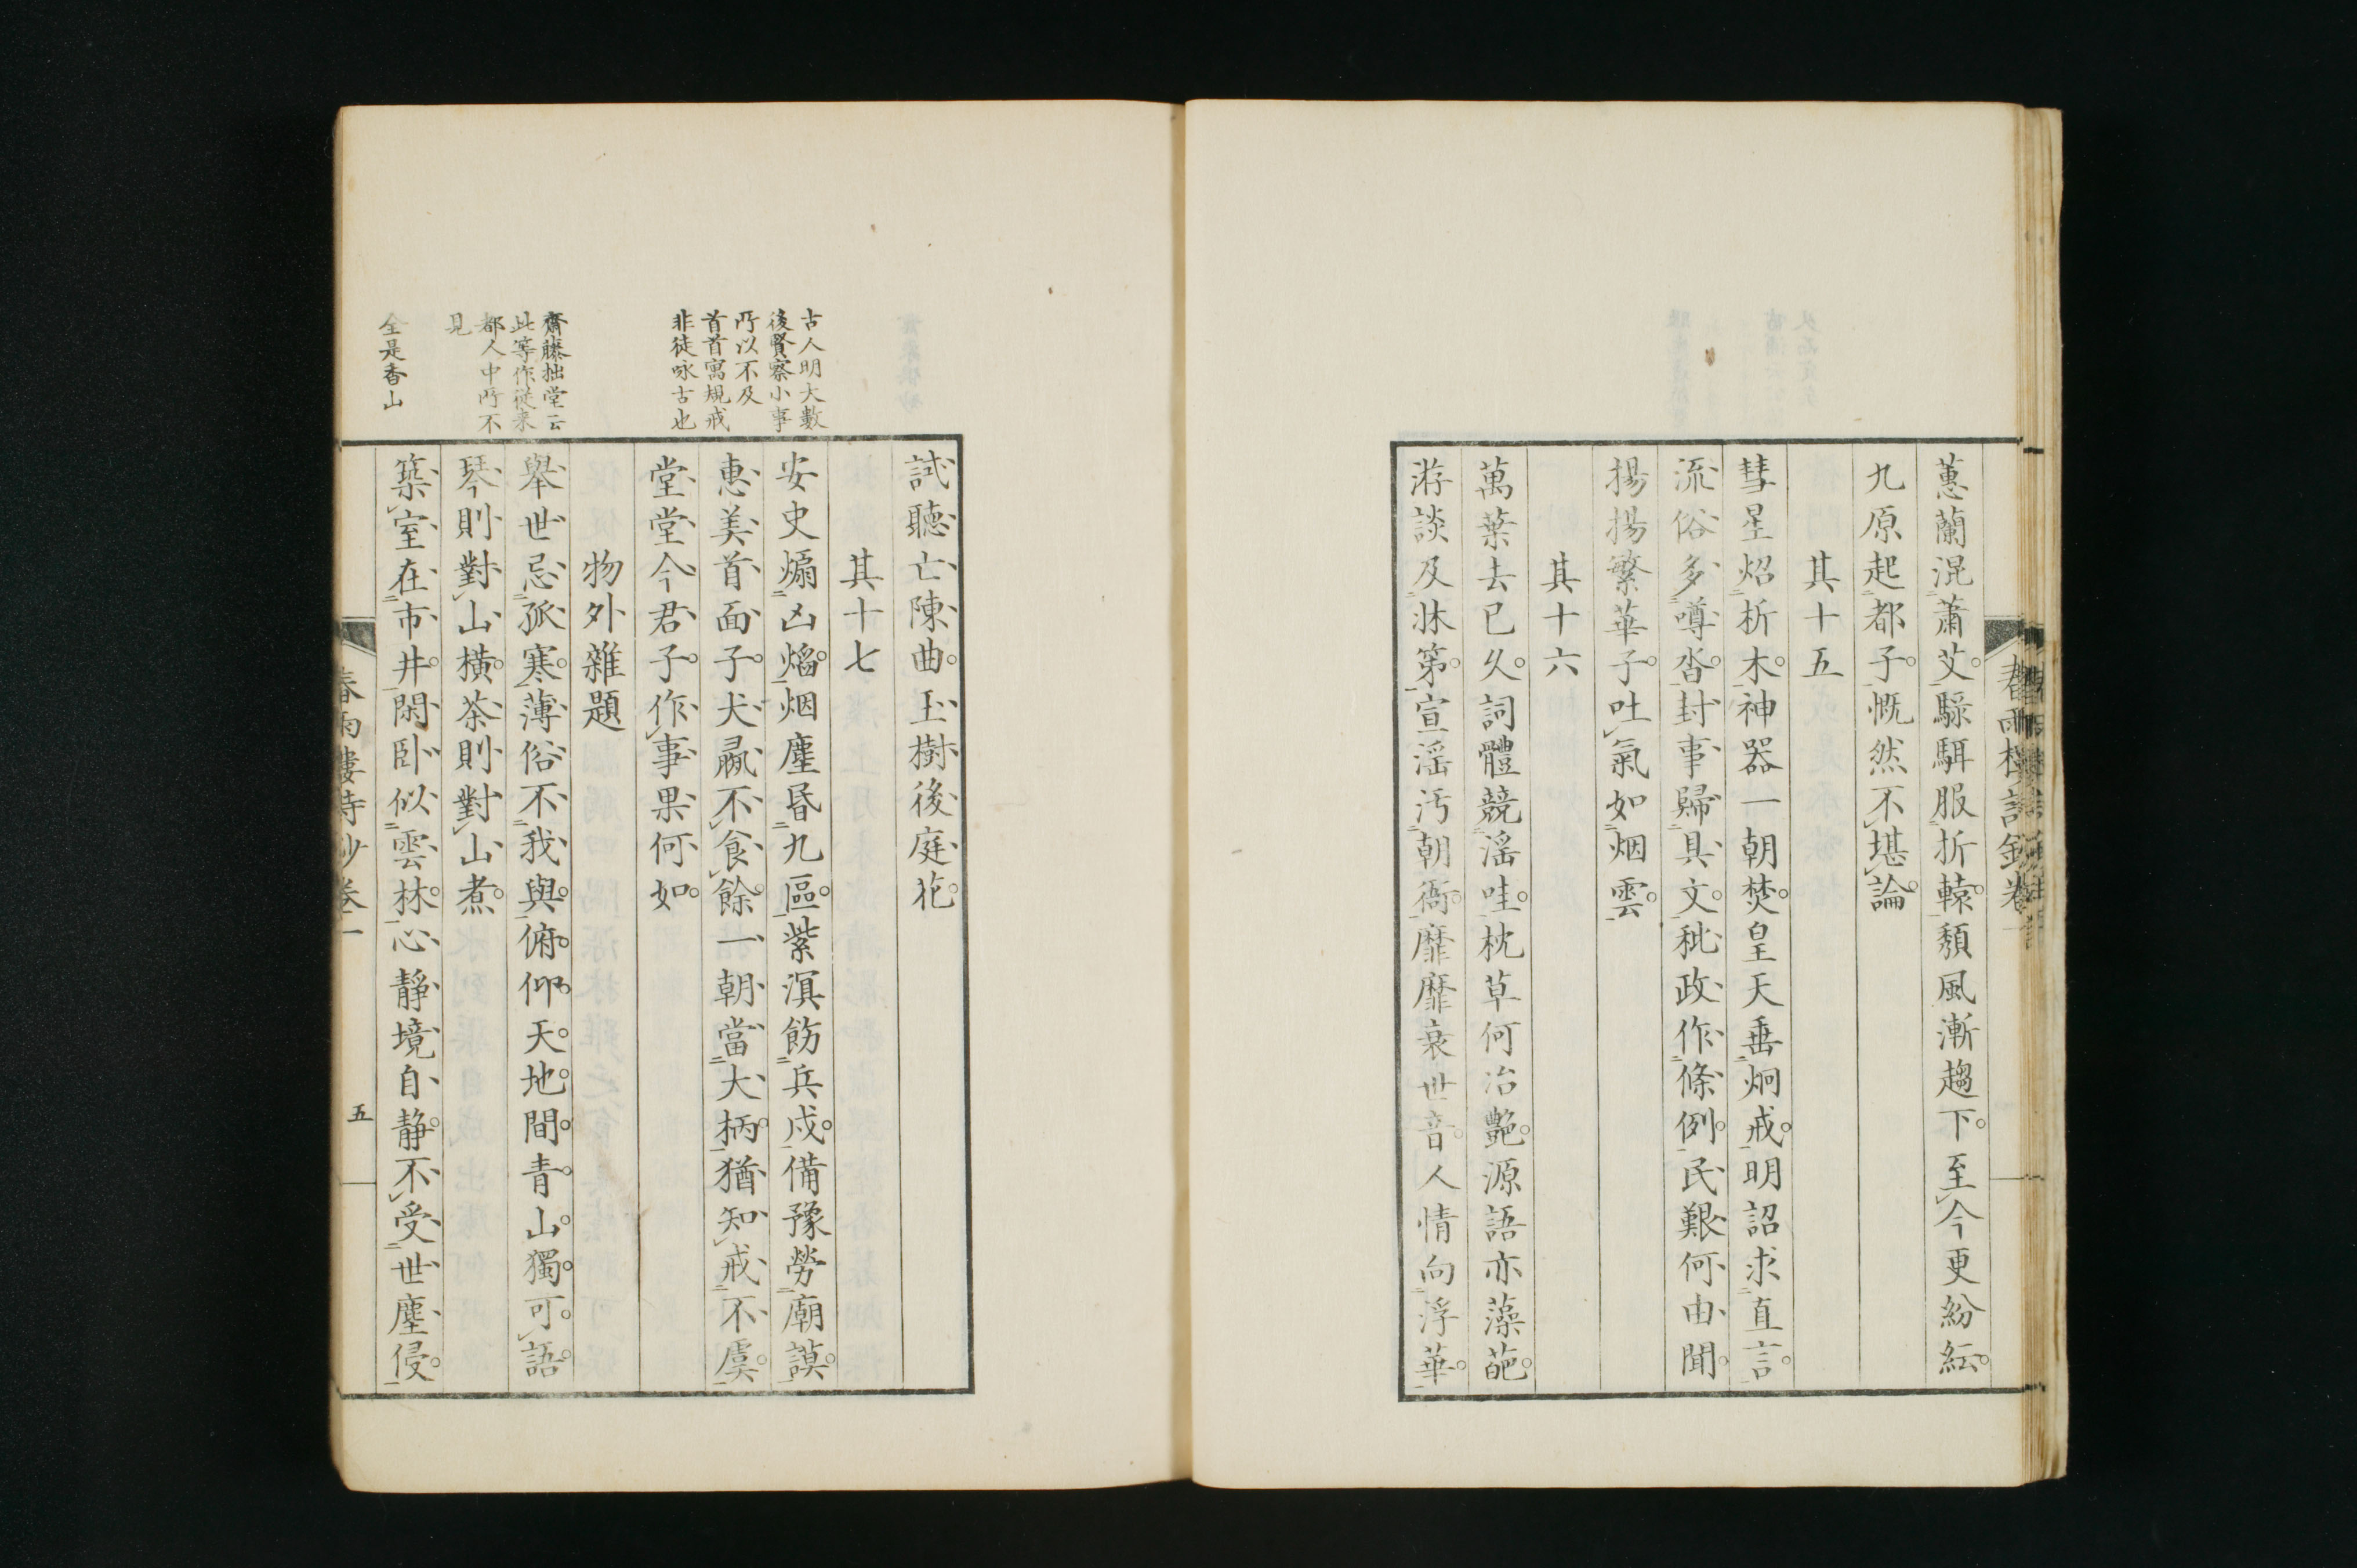 蕙蘭混蕭艾騄駬服折轅頽風漸趨下至今更紛紜
九原起都子慨然不堪論
其十五
彗星炤析木神器一朝焚皇天垂炯戒明詔求直言
流俗多噂沓封事歸具文秕政作條例民艱何由聞
揚揚繁華子吐氣如烟雲
其十六
萬葉去已久詞體競滛哇枕草何冶艷源語亦藻葩
游談及牀第宣滛汚朝衙靡靡衰世音人情向浮華
試聽亡陳曲玉樹後庭花
其十七
安史煽凶熖烟塵昏九區紫溟飭兵戍備豫勞廟謨
惠美首面子犬羸不食餘一朝當大柄猶知戒不虞
堂堂今君子作事果何如
物外雜題
舉世忌孤寒薄俗不我與俯仰天地間青山獨可語
琴則對山橫茶則對山煮
築室在市井閑臥似雲林心靜境自静不受世塵侵
古人明大數
後賢察小事
所以不及
首首寓規戒
非徒咏古也
齋藤拙堂云
此等作従来
都人中所不
見
全是香山
春雨樓詩鈔卷一
五